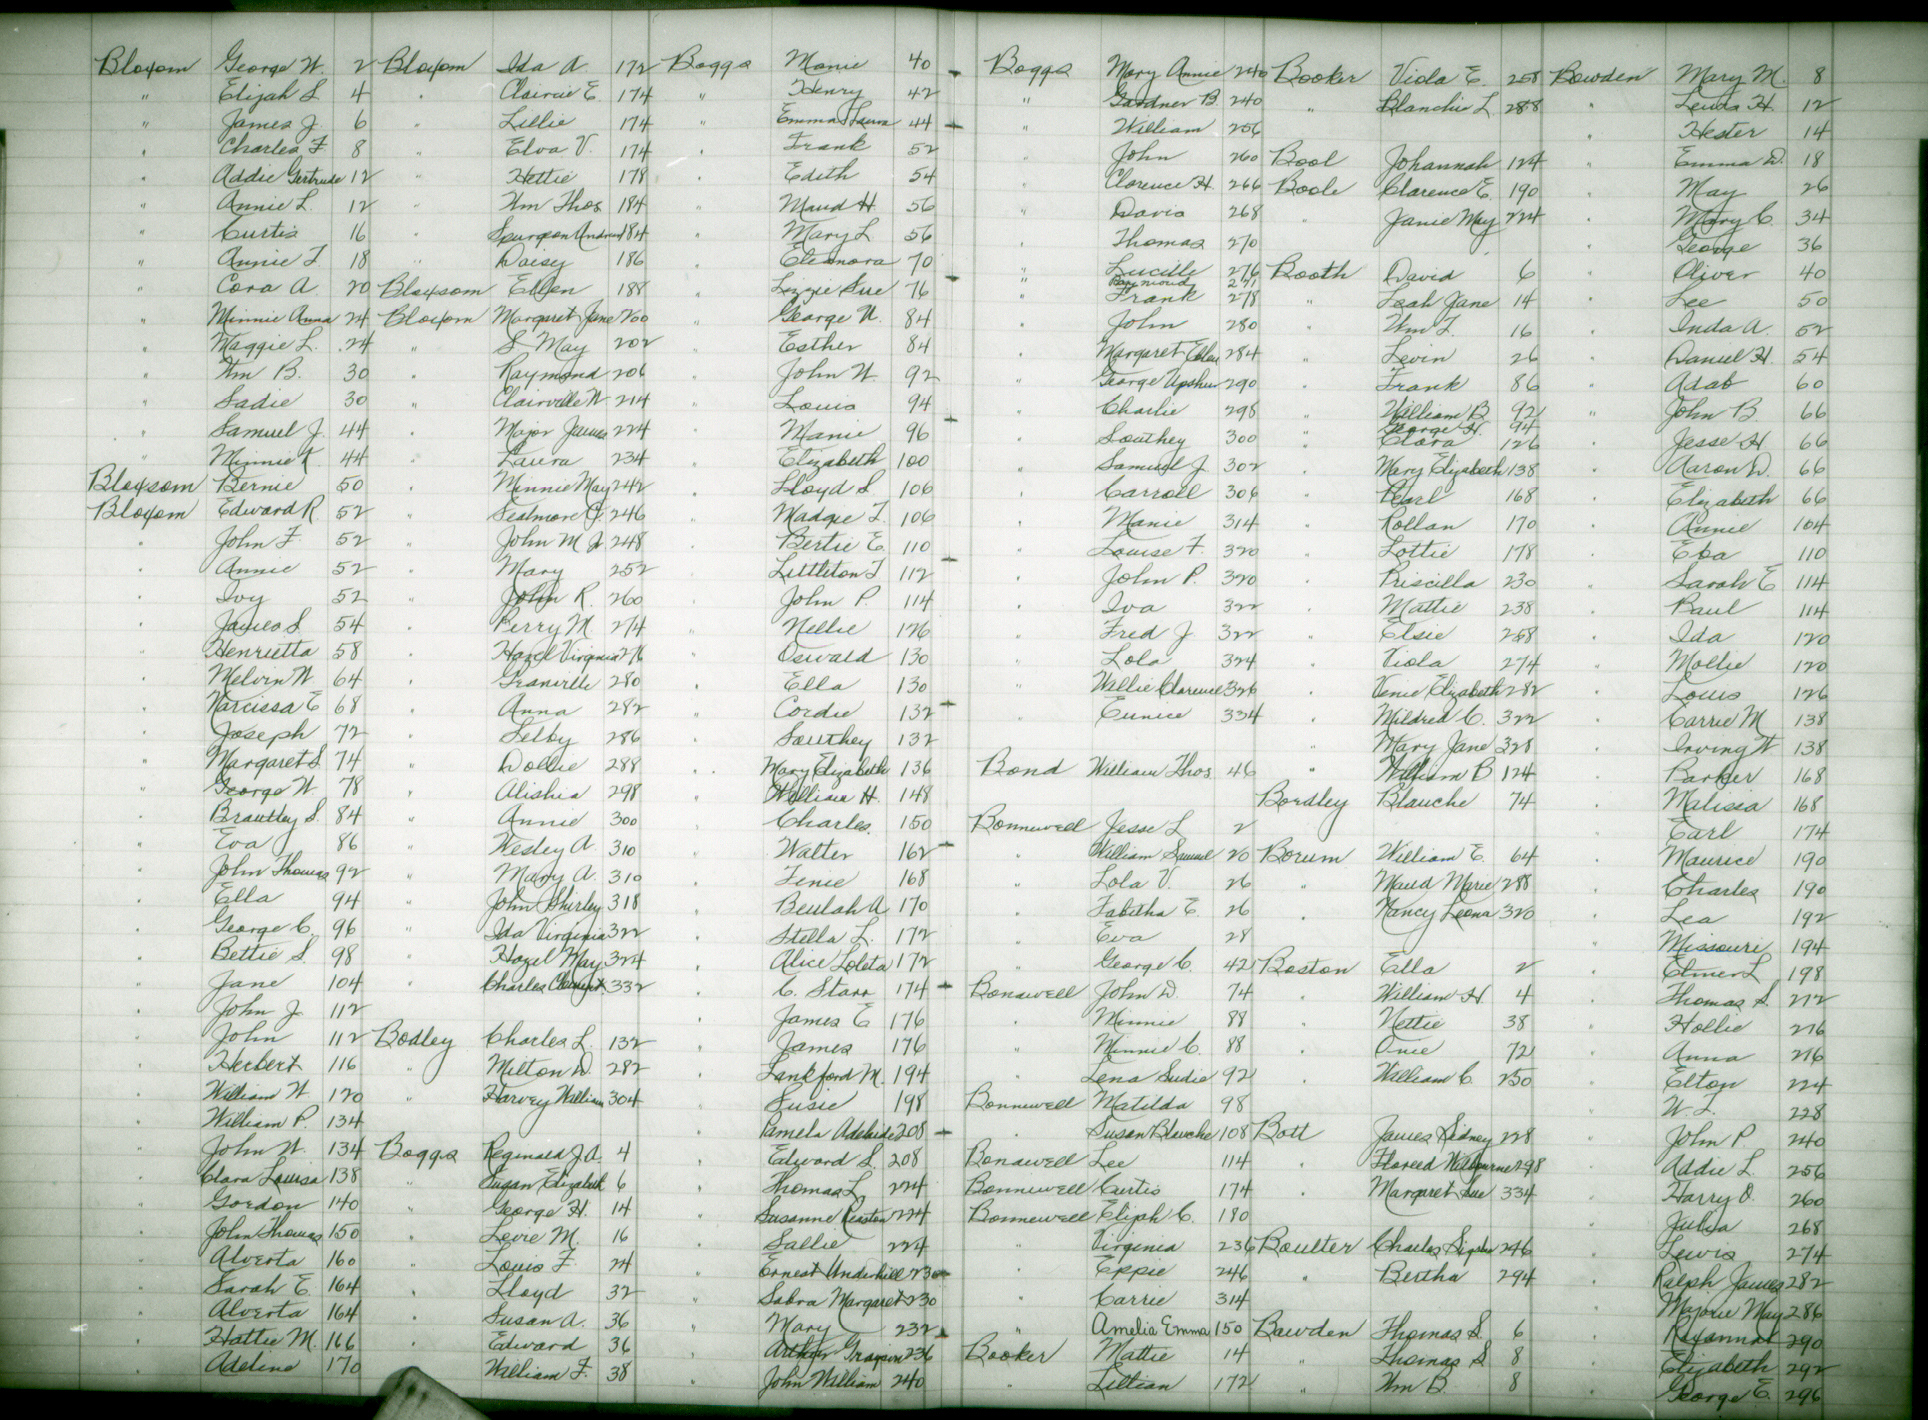 Bloxom George W. 2
" Elijah S 4
" James J. 6
" Charles F. 8
" Addie Gertrude 12
" Annie L. 12
" Curtis 16
" Annie T 18
" Cora A. 20
" Minnie Anna 24
" Maggie L. 24
" Wm B. 30
" Sadie 30
" Samuel J. 44
" Minnie K. 44
Bloxsom Bernie 50
Bloxom Edward R 52
" John F. 52
" Annie 52
" Ivy 52
" James S 54
" Henrietta 58
" Melvin W 64
" Narcissa E 68
" Joseph 72
" Margaret S 74
" George W. 78
" Brantley S. 84
" Eva 86
" John Thomas 92
" Ella 94
" George C. 96
" Bettie S. 98
" Jane 104
" John J. 112
" John 112
" Herbert 116
" William W. 120
" William P. 134
" John W. 134
" Clara Louisa 138
" Gordon 140
" John Thomas 150
" Alverta 160
" Sarah E. 164
" Alverta 164
" Hattie M. 166
" Adeline 170
Bloxom Ida A 172
" Claircie E. 174
" Lillie 174
" Elva V. 174
" Hettie 178
" Wm Thos 184
" Spurgeon Andrew 184
" Daisy 186
Bloxsom Ellen 188
Bloxom Margaret Jane 200
" S May 202
" Raymond 206
" Clairville W. 214
" Major James 224
" Laura 234
" Minnie May 242
" Sealmore J. 246
" John M Jr 248
" Mary 252
" John R. 260
" Perry M. 274
" Hazel Virginia 276
" Granville 280
" Anna 282
" Selby 286
" Dollie 288
" Alishia 298
" Annie 300
" Wesley A. 310
" Mary A. 310
" John Shirley 318
" Ida Virginia 322
" Hazel May 324
" Charles 332
Bodley Charles L. 132
" Milton D. 282
" Harvey William 304
Boggs Reginald J.A. 4
" Susan Elizabeth 6
" George H. 14
" Levie M. 16
" Louis F. 24
" Lloyd 32
" Susan A. 36
" Edward 36
" William F. 38
Boggs Manie 40
" Henry 42
" Emma Laura 44
" Frank 52
" Edith 54
" Maud H 56
" Mary L 56
" Eleanora 70
" Lizzie Sue 76
" George W. 84
" Esther 84
" John W. 92
" Louis 94
" Manie 96
" Elizabeth 100
" Lloyd S. 106
" Madge T. 106
" Bertie E. 110
" Littleton T 112
" John P. 114
" Nellie 126
" Oswald 130
" Ella 130
" Cordie 132
" Southey 132
" Mary Elizabeth 136
" William H. 148
" Charles. 150
" Walter 162
" Fenie 168
" Beulah A 170
" Stella L. 172
" Alice Loleta 172
" C. Starr 174
" James E 176
" James 176
" Lankford M. 194
" Susie 198
" Pamela Adelaide 208
" Edward S. 208
" Thomas L 224
" Susanne Keaston 224
" Sallie 224
" Ernest Underhill 230
" Sabra Margaret 230
" Mary 232
" Arthur Grayson 236
" John William 240
Boggs Mary Annie 240
" Gardner B. 240
" William 256
" John 260
" Clarence H. 266
" Davis 268
" Thomas 270
" Lucille 276
Raymond 271
" Frank 278
" John 280
" Margaret Ellen 284
" George Upshur 290
" Charlie 298
" Southey 300
" Samuel J. 302
" Carroll 306
" Manie 314
" Louise F. 320
" John P. 320
" Iva 322
" Fred J. 322
" Lola 324
" Willie Clarence 326
" Eunice 334
Bond William Thos. 46
Bonnewell Jesse L 2
" William Samuel 20
" Lola V. 26
" Tabitha E. 26
" Eva 28
" George C. 42
Bonawell John D. 74
" Minnie 88
" Minnie C. 88
" Lena Sudie 92
Bonnewell Matilda 98
" Susan Blanche 108
Bonawell Lee 114
Bonnewell Curtis 174
Bonnewell Elijah C. 180
" Virginia 236
" Eppie 246
" Carrie 314
" Amelia Emma 150
Booker Mattie 14
" Lillian 172
Booker Viola E. 258
" Blanche L. 288
Bool Johannah 124
Boole Clarence E. 190
" Janie May 224
Booth David 6
" Leah Jane 14
" Wm T. 16
" Levin 26
" Frank 86
" William B. 92
George H. 94
" Clara 126
" Mary Elizabeth 138
" Pearl 168
" Rollan 170
" Lottie 178
" Priscilla 230
" Mattie 238
" Elsie 258
" Viola 274
" Venie Elizabeth 282
" Mildred C. 322
" Mary Jane 328
" William B 124
Bordley Blanche 74
Borum William E. 64
" Maud Marie 288
" Nancy Leona 320
Boston Ella 2
" William H 4
" Nettie 38
" Onie 72
" William C. 250
Bott James Sidney 228
" 298
" Margaret Sue 334
Boulter Charles 246
" Bertha 294
Bowden Thomas S. 6
" Thomas S 8
" Wm B. 8
Bowden Mary M. 8
" Lewis H. 12
" Hester 14
" Emma D. 18
" May 26
" Mary C. 34
" George 36
" Oliver 40
" Lee 50
" Inda A. 52
" Daniel H. 54
" Adab 60
" John B 66
" Jesse H 66
" Aaron D. 66
" Elizabeth 66
" Annie 104
" Eba 110
" Sarah E 114
" Paul 114
" Ida 120
" Mollie 120
" Louis 126
" Carrie M 138
" Irving W 138
" Parker 168
" Malissa 168
" Earl 174
" Maurice 190
" Charles 190
" Lea 192
" Missouri 194
" Elmer L 198
" Thomas S. 212
" Hollie 216
" Anna 216
" Elton 224
" W. T. 228
" John P 240
" Addie L. 256
" Harry O. 260
" Julia 268
" Lewis 274
" Ralph James 282
" Marjorie May 286
" Roxannah 290
" Elizabeth 292
" George E. 296